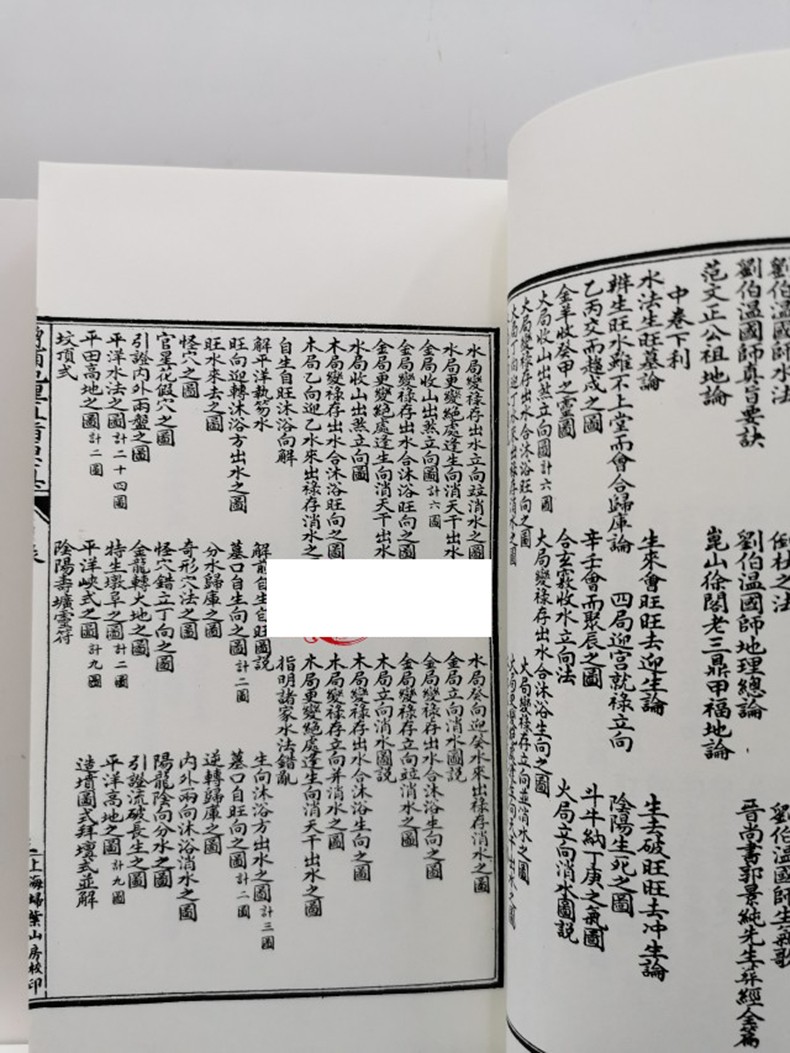 劉伯溫國師水法 倒杖之法 劉伯溫國師生氣歌
劉伯溫國師真旨要訣 劉伯溫國師地理總論 晉尚書郭景純先生葬經全篇
范文正公祖地論 崑山徐閣老三鼎甲福地論
中卷下利
水法生旺墓論 生來會旺旺去迎生論 生去破旺旺去冲生論
辨生旺水雖不上堂而會合歸庫論 四局迎官就祿立向 陰陽生死之圖
乙丙交而趨戌之圖 辛壬會而聚辰之圖 斗牛納丁庚之氣圖
金羊收癸甲之靈圖 合玄竅收水立向法 火局立向消水圖說
火局收山出煞立向圖計六圖 火局變祿存出水合沐浴生向之圖
火局變祿存出水合沐浴旺向之圖 火局變祿存立向並消水之圖
水局變祿存出水立向竝消水之圖 水局癸向迎癸水來出祿存消水之圖
水局更變絕處逢生向消天干出水 金局立向消水圖說
金局收山出煞立向圖計六圖 金局變祿存出水合沐浴生向之圖
金局變祿存出水合沐浴旺向之圖 金局變祿存立向竝消水之圖
金局更變絕處逢生向消天干出水 木局立向消水圖說
木局收山出煞立向圖 木局變祿存出水合沐浴生向之圖
木局變祿存出水合沐浴旺向之圖 木局變祿存立向并消水之圖
木局乙向迎乙水來出祿存消水之 木局更變絕處逢生向消天干出水之圖
自生自旺沐浴向解 指明諸家水法錯亂
解平洋執笏水 解前自生自旺圖說 生向沐浴方出水之圖計三圖
旺向迎轉沐浴方出水之圖 墓口自生向之圖計二圖 墓口自旺向之圖計二圖
旺水來去之圖 分水歸庫之圖 逆轉歸庫之圖
怪穴之圖 奇形穴法之圖 內外兩向沐浴消水之圖
官星花假穴之圖 怪穴錯立丁向之圖 陽龍陰向分水之圖
引證內外兩盤之圖 金龍轉大地之圖 引證流破長生之圖
平洋水法之圖計二十四圖 特生墩阜之圖計二圖 平洋高地之圖計九圖
平田高地之圖計二圖 平洋峽式之圖計九圖 造墳圖式拜壇式並解
坟頂式 陰陽壽壙靈符
上海埽葉山房校印